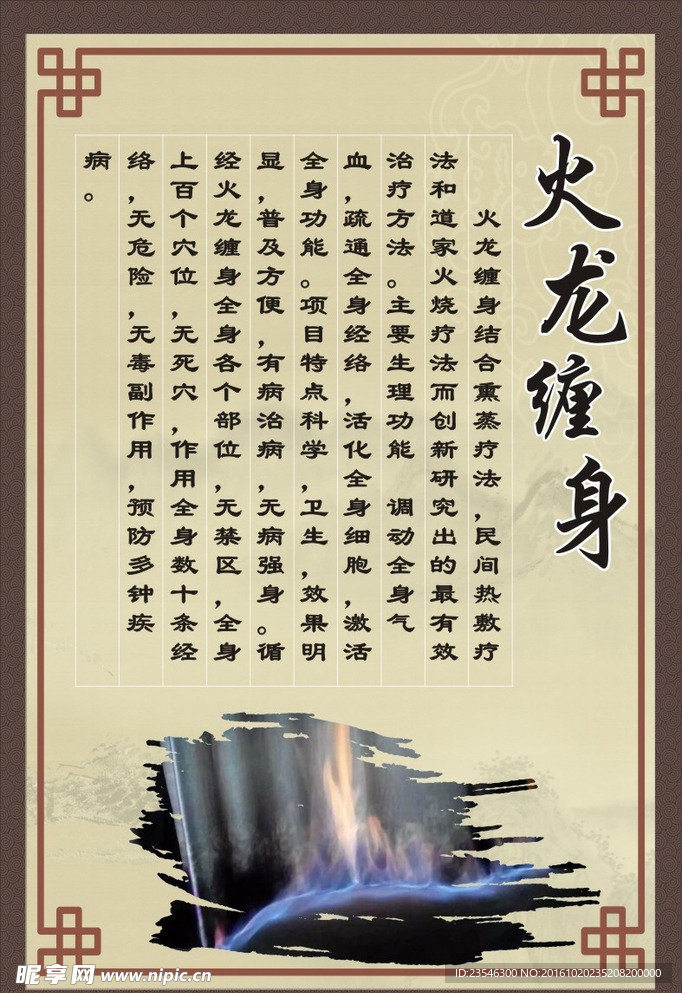 火龙缠身
火龙缠身结合熏蒸疗法,民间热敷疗
法和道家火烧疗法而创新研究出的最有效
治疗方法。主要生理功能 调动全身气
血,疏通全身经络,活化全身细胞,激活
全身功能。项目特点科学,卫生,效果明
显,普及方便,有病治病,无病强身。循
经火龙缠身全身各个部位,无禁区,全身
上百个穴位,无死穴,作用全身数十条经
络,无危险,无毒副作用,预防多钟疾
病。
昵享网 www.nipic.cn
ID:23546300 NO:20161020235208200000